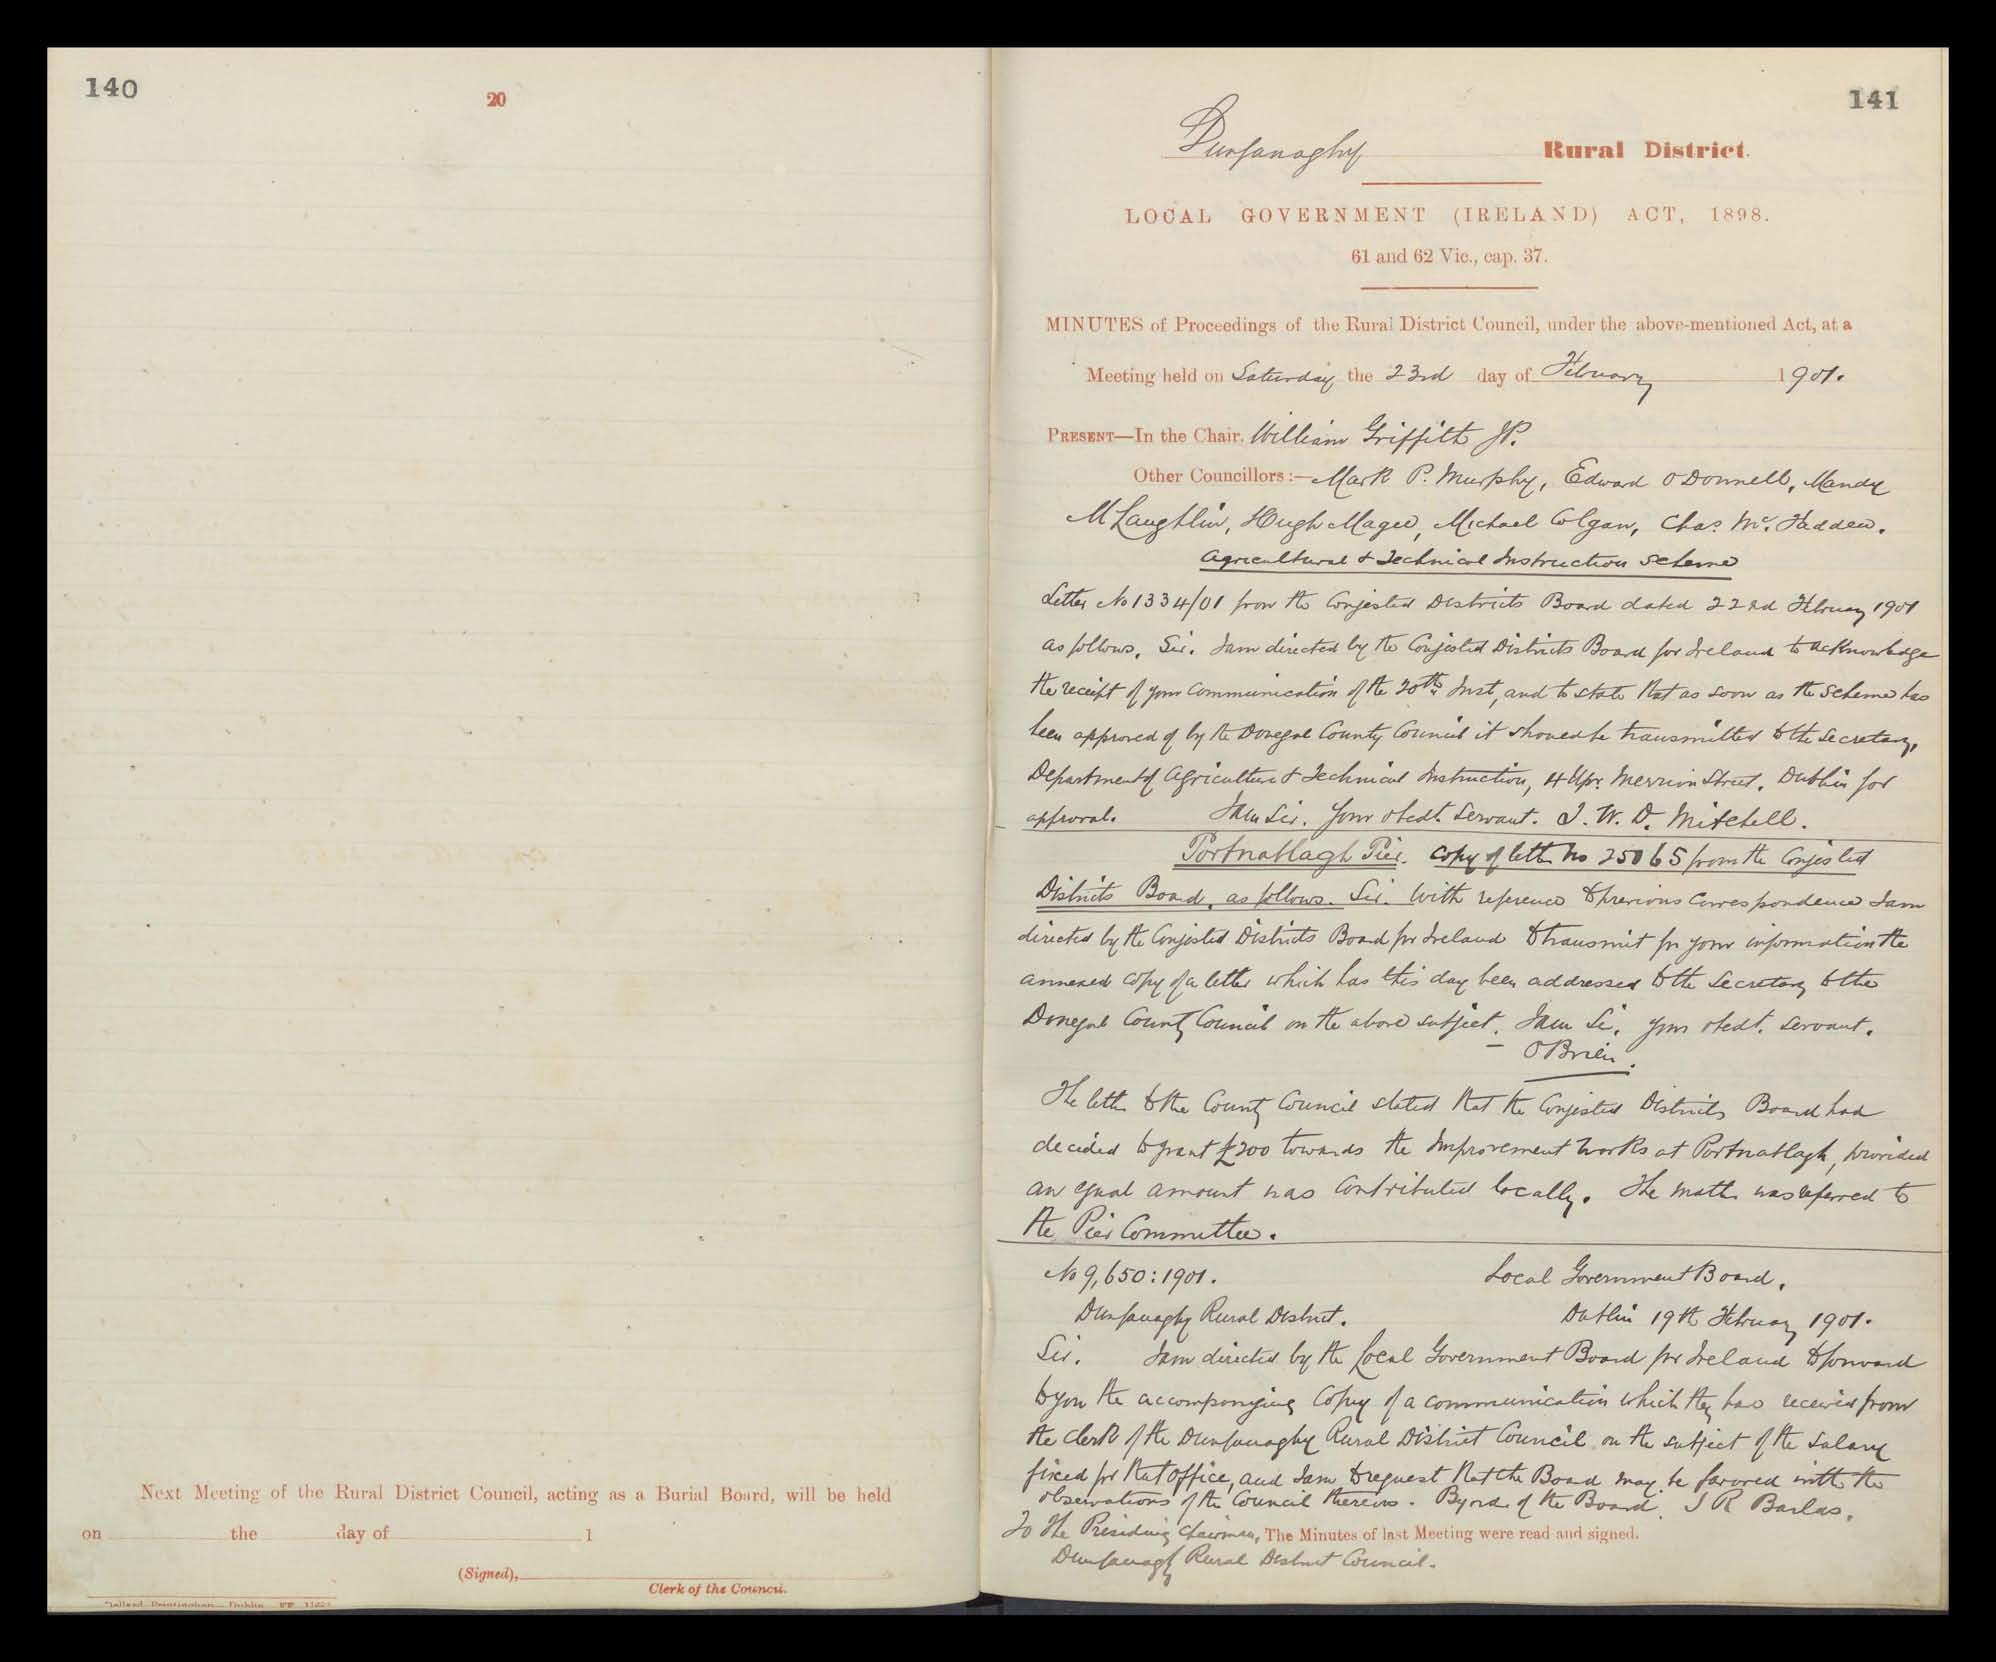 140
20
Next Meeting of the Rural District Council, acting as a Burial Board, will be held
on the day of 1
(Signed),
Clerk of the Council.
141
Dunfanaghy Rural District.
LOCAL GOVERNMENT (IRELAND) ACT, 1898.
61 and 62 Vic., cap. 37.
MINUTES of Proceedings of the Rural District Council, under the above-mentioned Act, at a
Meeting held on Saturday the 23rd day of February 1901.
PRESENT—In the Chair, William Griffith JP.
Other Councillors :— Mark P. Murphy, Edward O Donnell, Mandy
McLaughlin, Hugh Magee, Michael Colgan, Chas. Mc. Fadden.
Agricultural & Technical Instruction Scheme
Letter No 1334/01 from the Congested Districts Board dated 22nd February 1901
as follows. Sir. I am directed by the Congested Districts Board for Ireland to acknowledge
the receipt of your communication of the 20th Inst, and to state that as soon as the scheme has
been approved of by the Donegal County Council it should be transmitted to the Secretary,
Department of Agriculture & Technical Instruction, 4 Upr. Merrion Street. Dublin for
approval. I am Sir. Your obedt. Servant. J. W. D. Mitchell.
Portnablagh Pier. Copy of letter No 25065 from the Congested
Districts Board, as follows. Sir. With reference to previous correspondence I am
directed by the Congested Districts Board for Ireland to transmit for your information the
annexed copy of a letter which has this day been addressed to the Secretary to the
Donegal County Council on the above subject. I am Sir, your obedt. Servant.
O Brien.
The letter to the County Council stated that the Congested Districts Board had
decided to grant £200 towards the Improvement works at Portnablagh, provided
an equal amount was contributed locally. The matter was referred to
the Pier Committee.
No 9,650:1901. Local Government Board,
Dunfanaghy Rural District. Dublin 19th February 1901.
Sir. I am directed by the Local Government Board for Ireland to forward
to you the accompanying copy of a communication which they has received from
the Clerk of the Dunfanaghy Rural District Council on the subject of the Salary
fixed for that office, and I am to request that the Board may be favored with the
observations of the Council thereon. By order of the Board. J R Barlas.
To The Presiding Chairman, The Minutes of last Meeting were read and signed.
Dunfanaghy Rural District Council.